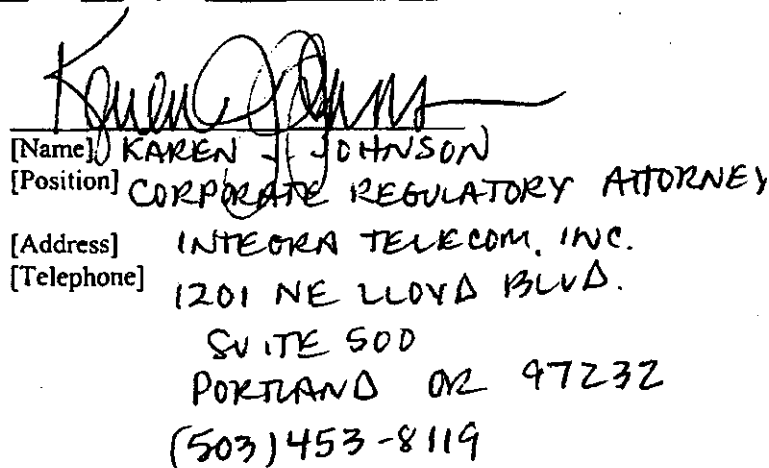 [Name] KAREN J. JOHNSON
[Position] CORPORATE REGULATORY ATTORNEY
[Address] INTEGRA TELECOM, INC.
[Telephone] 1201 NE LLOYD BLVD.
SUITE 500
PORTLAND OR 97232
(503) 453-8119